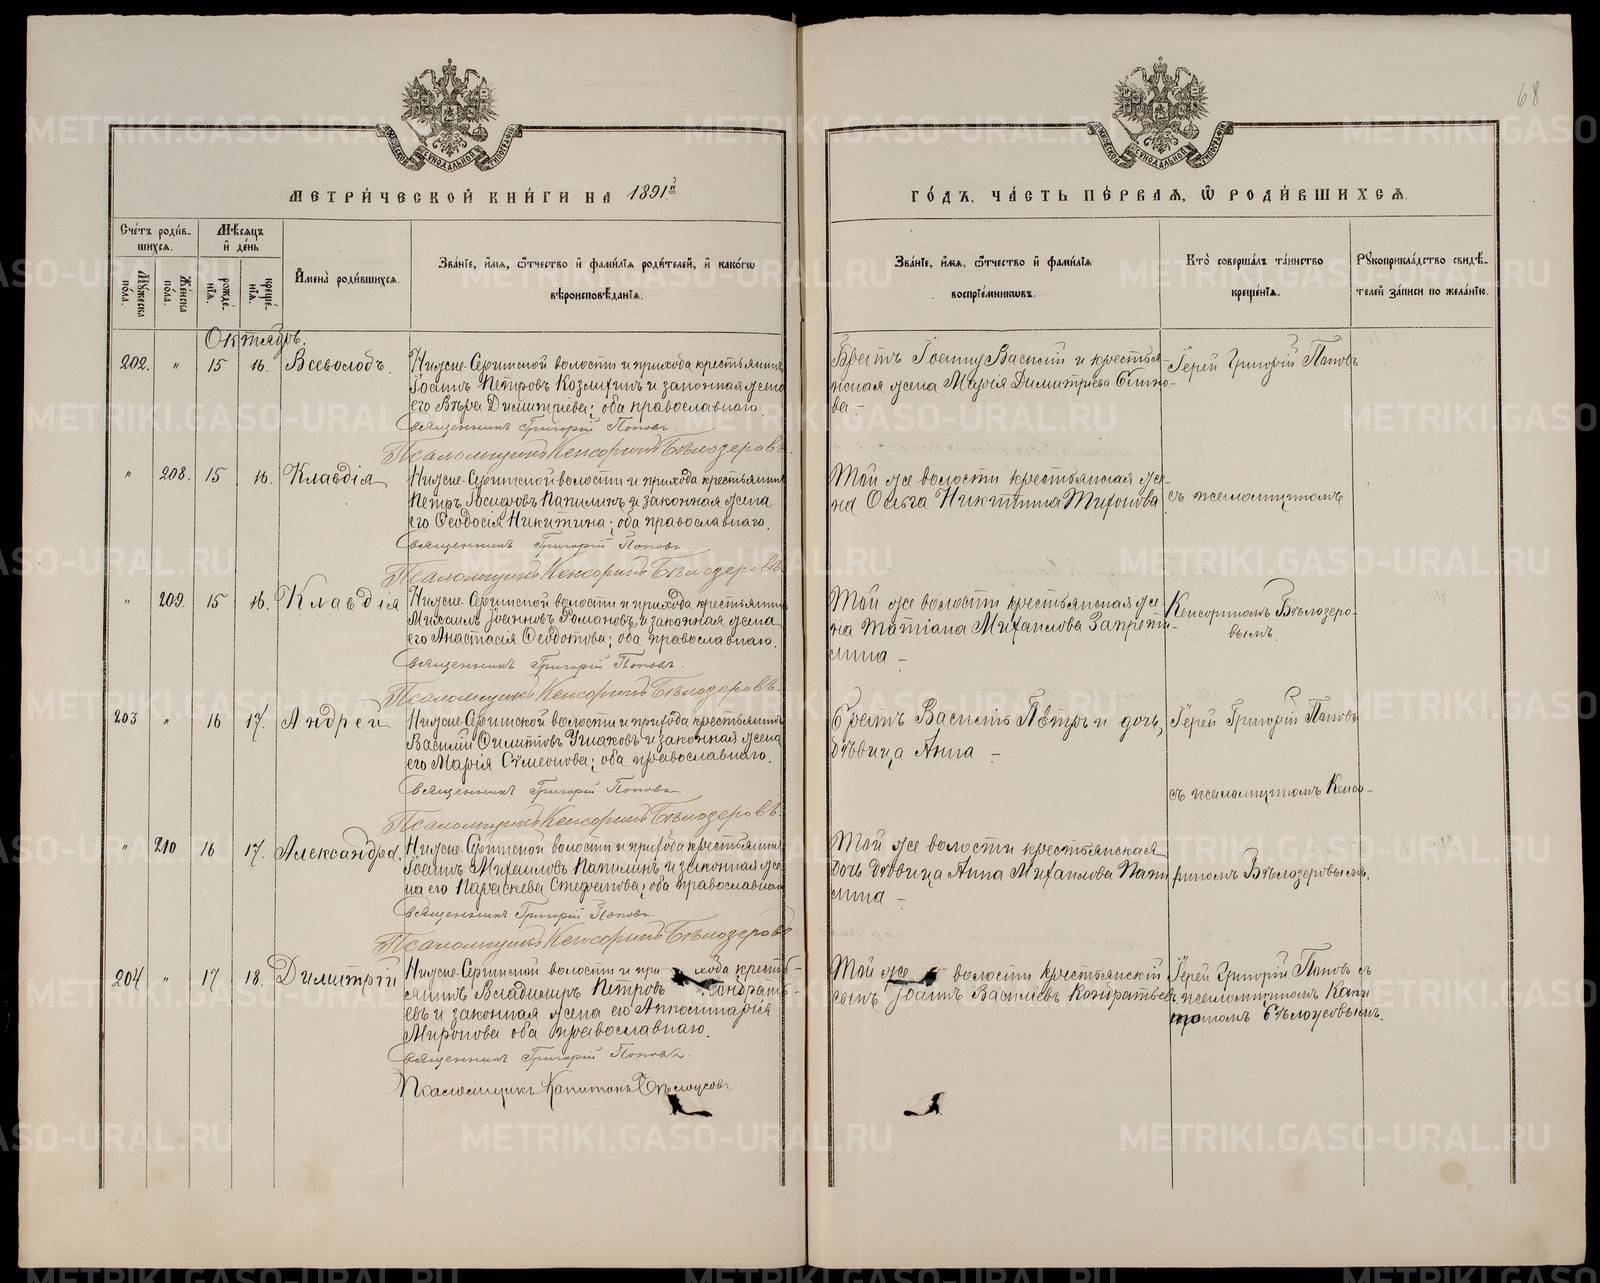 68
МЕТРИ́ЧЕСКОЙ КНИ́ГИ НА 1891й
ГО́ДЪ, ЧА́СТЬ ПЕ́РВАЯ, Ѡ РОДИ́ВШИХСЯ.
Сче́тъ роди́в-
шихся.
Мѣ́сяцъ
и де́нь
Му́жеска
по́ла.
Же́нска
по́ла.
рожде́-
нія.
креще́-
нія.
Имена̀ роди́вшихся.
Зва́ніе, и́мя, ѻ́тчество и фами́лія роди́телей, и како́гѡ
вѣроисповѣ́данія.
Зва́ніе, и́мя, ѻ́тчество и фами́лія
воспріе́мниковъ.
Кто̀ соверша́лъ та́инство
креще́нія.
Рукоприкла́дство свидѣ́-
телей за́писи по жела́нію.
Октябрь.
202. " 15 16. Всеволодъ.
Нижне-Сергинской волости и прихода крестьянинъ
Іоаннъ Петровъ Козлихинъ и законная жена
его Вѣра Димитріева; оба православнаго.
Священникъ Григорій Поповъ.
Псаломщикъ Кенсоринъ Бѣлозеровъ.
Братъ Іоанну Василій и крестья-
нская жена Марія Димитріева
ва. –
Іерей Григорій Поповъ
" 208. 15 16. Клавдія
Нижне-Сергинской волости и прихода крестьянинъ
Петръ Іосифовъ Папилинъ и законная жена
его Ѳеодосія Никитина; оба православнаго.
Священникъ Григорій Поповъ.
Псаломщикъ Кенсоринъ Бѣлозеровъ.
Той же волости крестьянская же-
на Ольга Никитина Тихонова
съ псаломщикомъ
" 209. 15 16. Клавдія
Нижне-Сергинской волости и прихода крестьянинъ
Михаилъ Іоанновъ Романовъ и законная жена
его Анастасія Ѳеодотова; оба православнаго.
Священникъ Григорій Поповъ.
Псаломщикъ Кенсоринъ Бѣлозеровъ.
Той же волости крестьянская же-
на Татіана Михаилова
лина –
Кенсориномъ Бѣлозеро-
вымъ.
203 " 16 17. Андрей
Нижне-Сергинской волости и прихода крестьянинъ
Василій Филиповъ Ушаковъ и законная жена
его Марія Сѵмеонова; оба православнаго.
Священникъ Григорій Поповъ
Псаломщикъ Кенсоринъ Бѣлозеровъ.
Братъ Василія Петръ и дочь,
дѣвица Анна –
Іерей Григорій Поповъ
съ псаломщикомъ Кенсо-
" 210 16 17. Александра.
Нижне-Сергинской волости и прихода крестьянинъ
Іоаннъ Михаиловъ Папилинъ и законная же-
на его Параскева Стефанова; оба православнаго
Священникъ Григорій Поповъ.
Псаломщикъ Кенсоринъ Бѣлозеровъ
Той же волости крестьянская
дочь дѣвица Анна Михаилова Папи
лина –
риномъ Бѣлозеровымъ.
204 " 17 18. Димитрій
Нижне-Сергинской волости и прихода кресть-
янинъ Владиміръ Петровъ Кондрать-
евъ и законная жена его Апполинарія
Миронова оба православнаго.
Священникъ Григорій Поповъ.
Псаломщикъ Капитонъ Бѣлоусовъ
Той же волости крестьянскій
сынъ Іоаннъ Василіевъ Кондратьевъ.
Іерей Григорій Поповъ съ
псаломщикомъ Капи
тономъ Бѣлоусовымъ.
METRIKI.GASO-URAL.RU